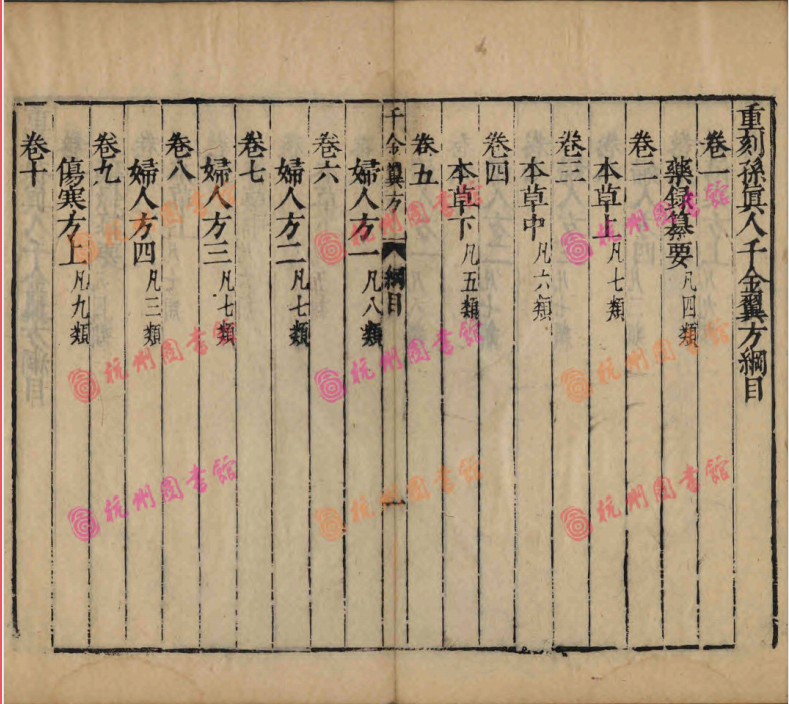 重刻孫眞人千金翼方綱目
卷一
藥録纂要凡四類
卷二
本草上凡七類
卷三
本草中凡六類
卷四
本草下凡五類
卷五
千金翼方 綱目 一
婦人方一凡八類
卷六
婦人方二凡七類
卷七
婦人方三凡七類
卷八
婦人方四凡三類
卷九
傷寒方上凡九類
卷十
杭州圖書館
杭州圖書館
杭州圖書館
杭州圖書館
杭州圖書館
杭州圖書館
杭州圖書館
杭州圖書館
杭州圖書館